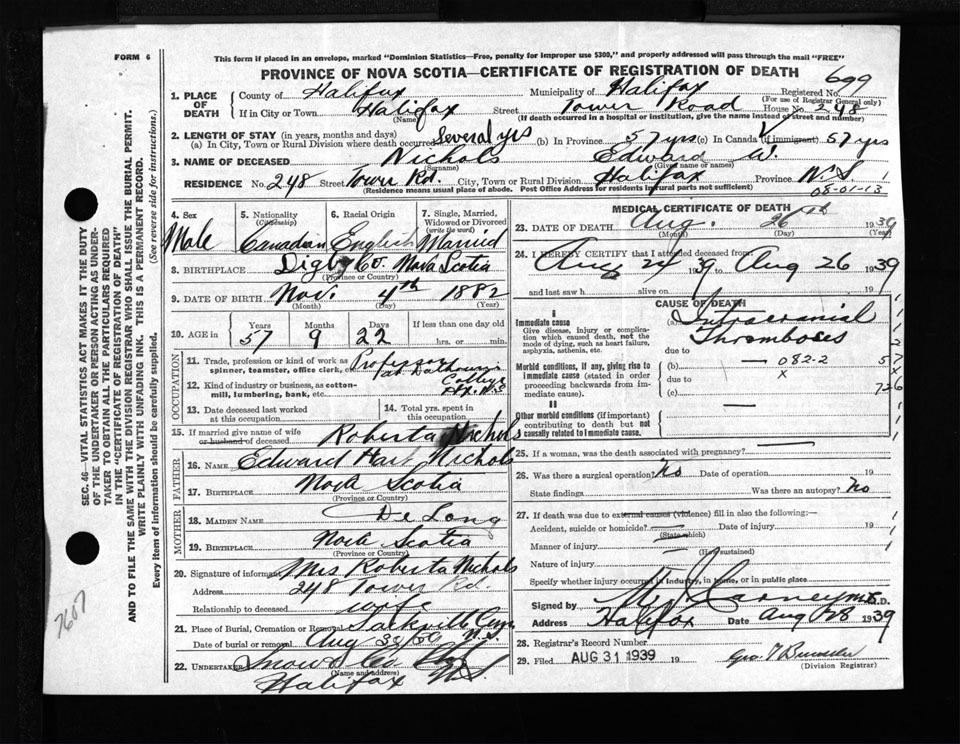 FORM 6
This form if placed in an envelope, marked "Dominion Statistics—Free, penalty for improper use $300," and properly addressed will pass through the mail "FREE"
PROVINCE OF NOVA SCOTIA—CERTIFICATE OF REGISTRATION OF DEATH
699
1. PLACE OF DEATH
County of Halifax Municipality of Halifax Registered No.
(For use of Registrar General only)
If in City or Town Halifax Street Tower Road House No. 248
(Name) (If death occurred in a hospital or institution, give the name instead of street and number)
2. LENGTH OF STAY (in years, months and days)
(a) In City, Town or Rural Division where death occurred Several yrs (b) In Province 57 yrs (c) In Canada (if immigrant) 57 yrs
3. NAME OF DECEASED Nichols Edward W.
(Surname) (Given name or names)
RESIDENCE No. 248 Street Tower Rd. City, Town or Rural Division Halifax Province N.S.
(Residence means usual place of abode. Post Office Address for residents in rural parts not sufficient)
08-01-13
4. Sex Male
5. Nationality (Citizenship) Canadian
6. Racial Origin English
7. Single, Married, Widowed or Divorced (write the word) Married
8. BIRTHPLACE Digby Co. Nova Scotia
(Province or Country)
9. DATE OF BIRTH Nov. 4th 1882
(Month) (Day) (Year)
10. AGE in Years Months Days If less than one day old
57 9 22 hrs. or min.
OCCUPATION
11. Trade, profession or kind of work as spinner, teamster, office clerk, etc. Professor at Dalhousie
12. Kind of industry or business, as cotton-mill, lumbering, bank, etc. College
13. Date deceased last worked at this occupation
14. Total yrs. spent in this occupation
15. If married give name of wife or husband of deceased Roberta Nichols
FATHER
16. NAME Edward Nichols
17. BIRTHPLACE Nova Scotia
(Province or Country)
MOTHER
18. MAIDEN NAME De Long
19. BIRTHPLACE Nova Scotia
(Province or Country)
20. Signature of informant Mrs Roberta Nichols
Address 248 Tower Rd.
Relationship to deceased wife
21. Place of Burial, Cremation or Removal Sackville N.S.
Date of burial or removal Aug
22. UNDERTAKER Snow & Co
(Name and address)
Halifax N.S.
MEDICAL CERTIFICATE OF DEATH
23. DATE OF DEATH Aug. 26th 1939
(Month) (Day) (Year)
24. I HEREBY CERTIFY that I attended deceased from
Aug 24 39 Aug 26 1939
and last saw h alive on 19
CAUSE OF DEATH
I
Immediate cause
Give disease, injury or complication which caused death, not the mode of dying, such as heart failure, asphyxia, asthenia, etc.
(a) Intracranial Thromboses
due to
Morbid conditions, if any, giving rise to immediate cause (stated in order proceeding backwards from immediate cause).
(b) 082-2
due to x
(c)
726
II
Other morbid conditions (if important) contributing to death but not causally related to immediate cause.
25. If a woman, was the death associated with pregnancy?
26. Was there a surgical operation? No Date of operation 19
State findings Was there an autopsy? No
27. If death was due to external causes (violence) fill in also the following:—
Accident, suicide or homicide? Date of injury 19
(State which)
Manner of injury
(How sustained)
Nature of injury
Specify whether injury occurred in industry, in home, or in public place
Signed by M.D.
Address Halifax Date Aug 28 1939
28. Registrar's Record Number
29. Filed AUG 31 1939 19
(Division Registrar)
SEC. 46—VITAL STATISTICS ACT MAKES IT THE DUTY
OF THE UNDERTAKER OR PERSON ACTING AS UNDER-
TAKER TO OBTAIN ALL THE PARTICULARS REQUIRED
IN THE "CERTIFICATE OF REGISTRATION OF DEATH"
AND TO FILE THE SAME WITH THE DIVISION REGISTRAR WHO SHALL ISSUE THE BURIAL PERMIT.
WRITE PLAINLY WITH UNFADING INK. THIS IS A PERMANENT RECORD.
Every item of information should be carefully supplied. (See reverse side for instructions.)
7607